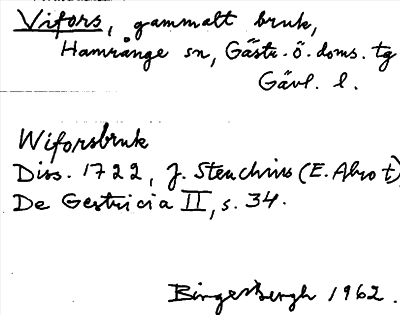 Vifors, gammalt bruk,
Hamrånge sn, Gästr. ö. doms. tg
Gävl. l.
Wiforsbruk
Diss. 1722, J. Stenchius (E. Alrot),
De Gestricia II, s. 34.
Birger Bergh 1962.